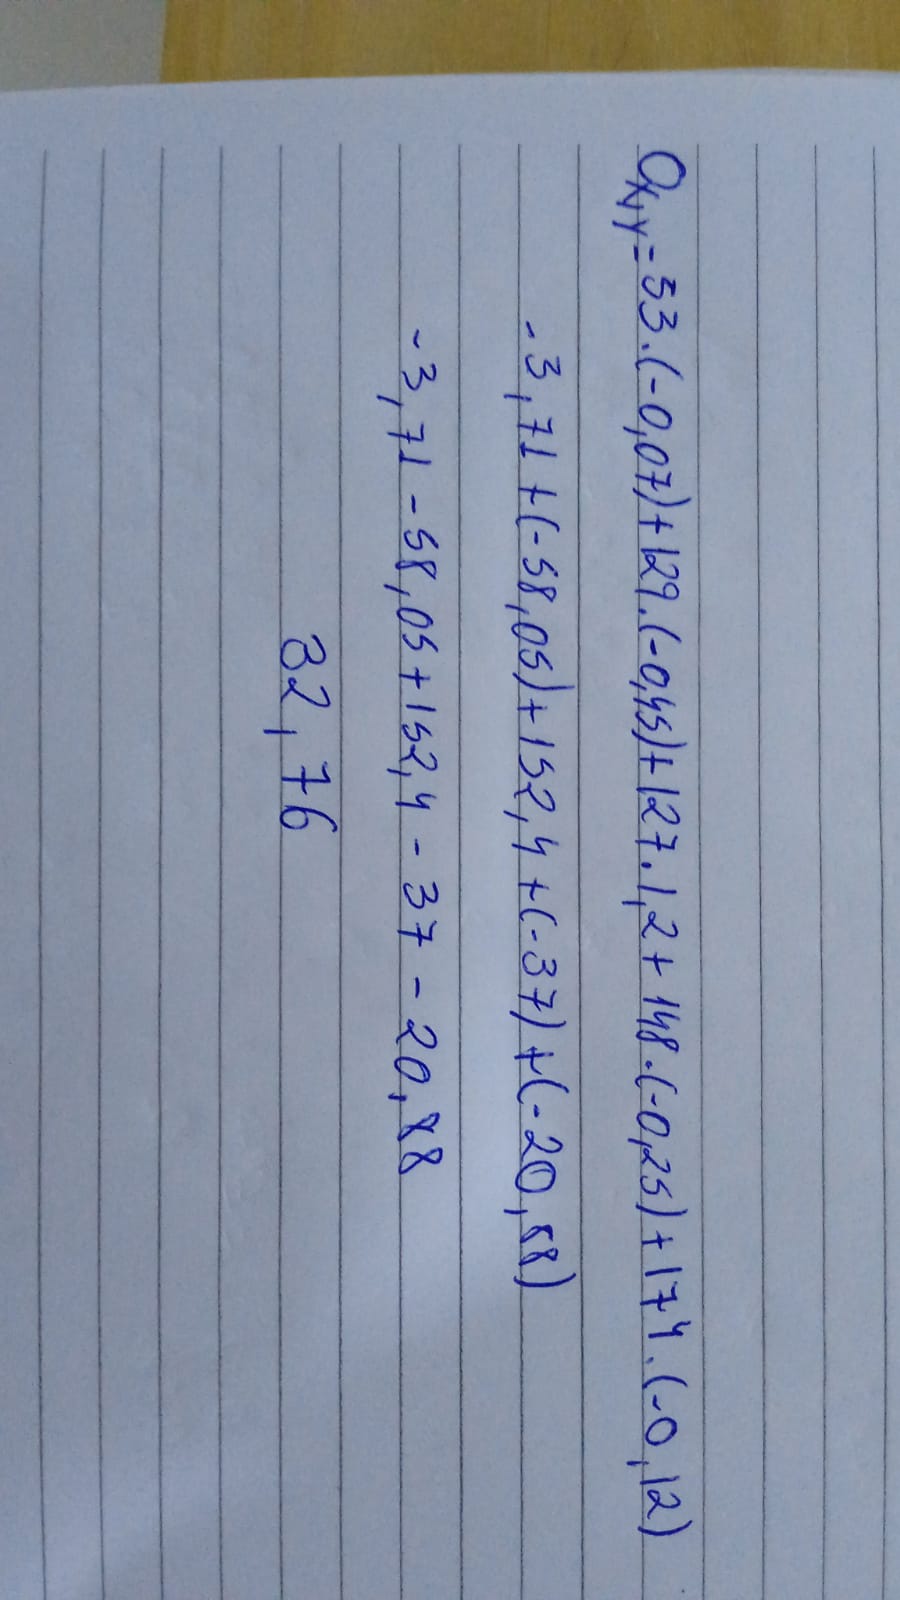 Ox,y = 53.(-0,07)+129.(-0,45)+127.1,2+148.(-0,25)+174.(-0,12)
-3,71+(-58,05)+152,4+(-37)+(-20,88)
-3,71-58,05+152,4-37-20,88
32,76